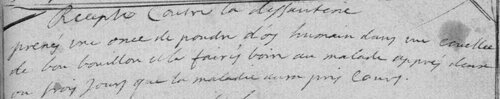 Recepte Contre la dissanterie
prenés une once de poudre dos humain dans une Cuillee
de bon bouillon et le fairés boire au malade apprés deux
ou trois jours que la maladie aura pris Cours.